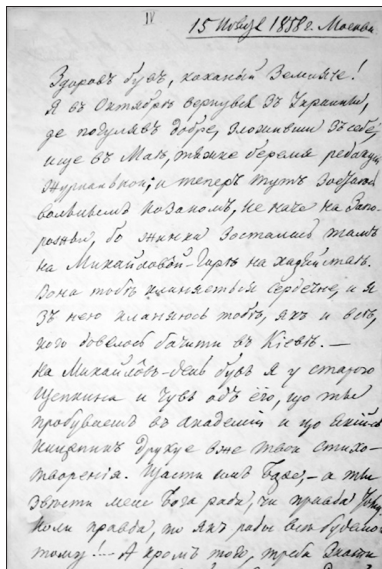 IV
15 Ноября 1858 г. Москва
Здоровъ бувъ, коханый Земляче!
Я въ Октябрѣ вернувся зъ Украины,
де погулявъ добре, зложивши зъ себе,
ище въ Маѣ, тяжке беремя редакціи
журнальнои; и теперъ тутъ
вольнымъ козакомъ, не наче на Запо-
рожьи, бо жинка зосталась тамъ
на Михайловôй-Горѣ на хазяйствѣ.
Вона тобѣ кланяеться сердечне, и я
зъ нею кланяюсь тобѣ, якъ и всѣ,
кого довелось бачити въ Кіевѣ. —
На Михайлôвъ-день бувъ я у старого
Щепкина и чувъ одъ ёго, що ты
пробуваешъ въ Академіи и що
друкуе вже твои стихо-
творенія. Щасти имъ Боже, — а ты
звѣсти мене Бога ради, чи правда
коли правда, то якъ рады всѣ будемо
тому! — А кромѣ того, треба